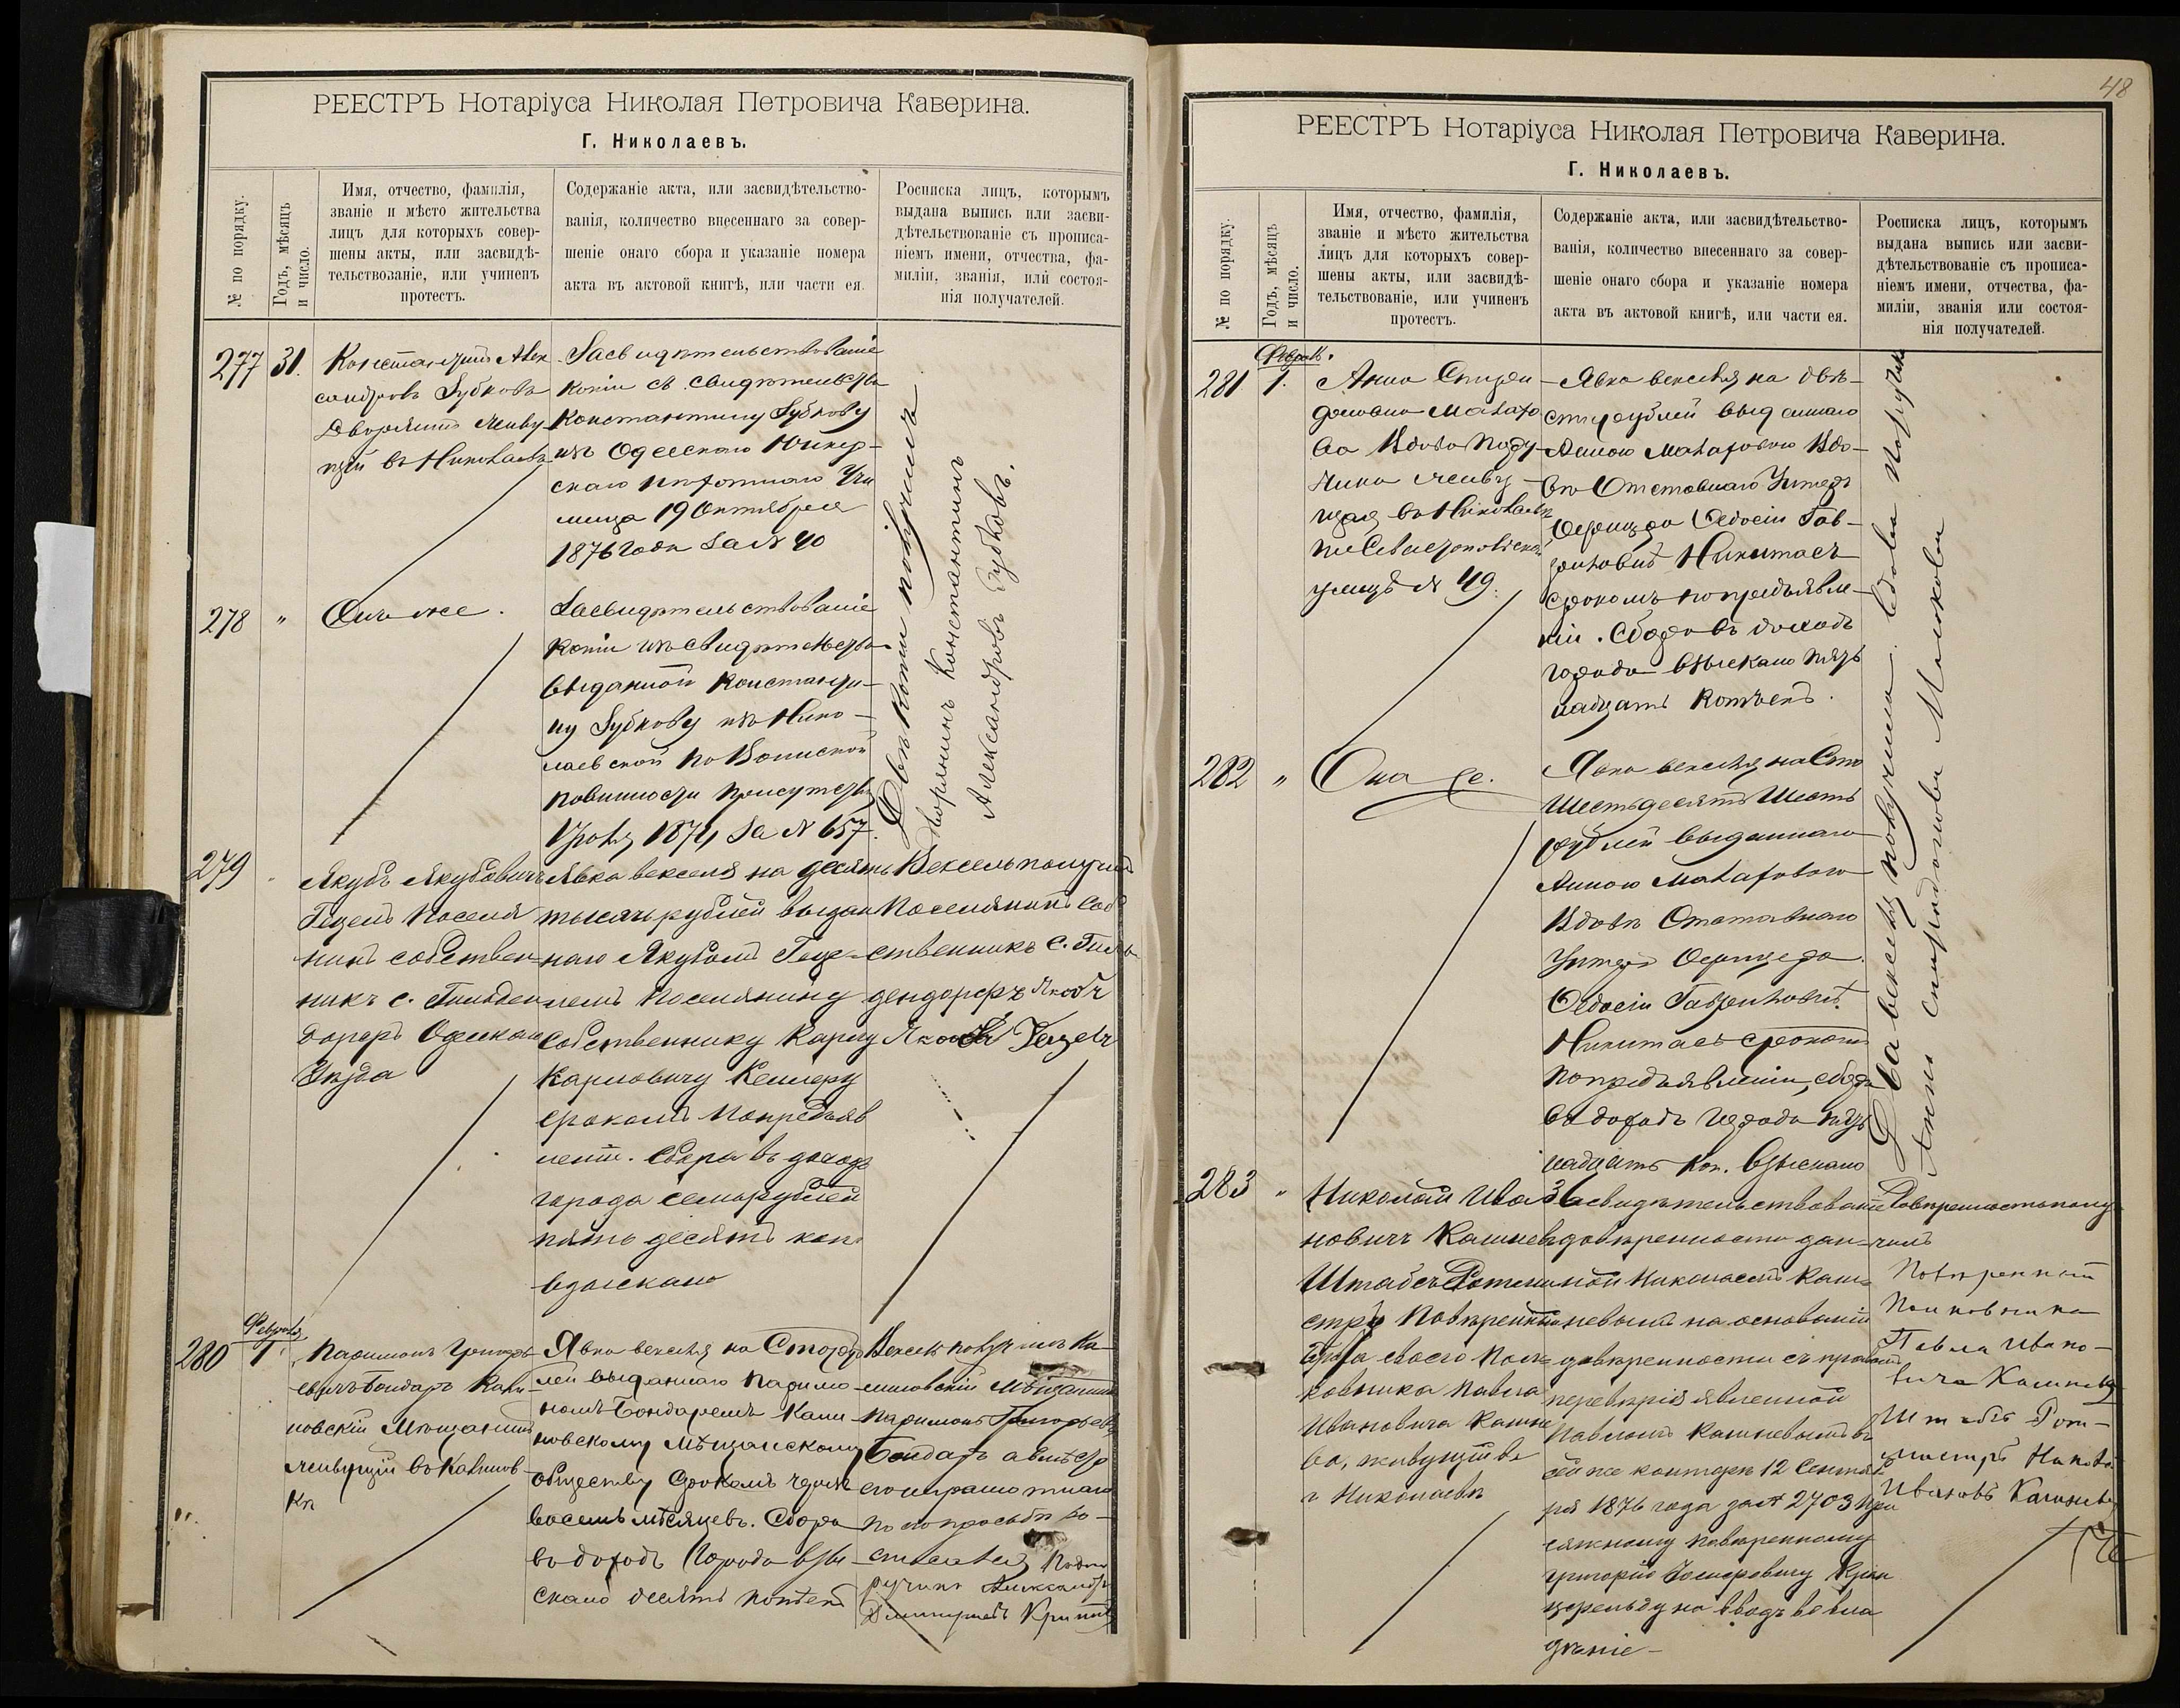 РЕЕСТРЪ Нотаріуса Николая Петровича Каверина.
Г. Николаевъ.
№ по порядку.
Годъ, мѣсяцъ
и число.
Имя, отчество, фамилія,
званіе и мѣсто жительства
лицъ для которыхъ совер-
шены акты, или засвидѣ-
тельствованіе, или учиненъ
протестъ.
Содержаніе акта, или засвидѣтельство-
ванія, количество внесеннаго за совер-
шеніе онаго сбора и указаніе номера
акта въ актовой книгѣ, или части ея.
Росписка лицъ, которымъ
выдана выпись или засви-
дѣтельствованіе съ прописа-
ніемъ имени, отчества, фа-
миліи, званія, или состоя-
нія получателей.
277
31.
Константинъ Алек
сандровъ Зубковъ
Дворянинъ живу-
щій въ Николаевѣ
Засвидѣтельствованіе
копіи съ свидѣтельства
Константину Зубкову
изъ Одесскаго Юнкер-
скаго пѣхотнаго Учи
лища 19 Октября
1876 года за № 40
278
"
Онъ же.
Засвидѣтельствованіе
копіи съ свидѣтельства
выданной Константи-
ну Зубкову изъ Нико-
лаевской по Воинской
повинности присутствія
1874 за № 657.
Двѣ копіи получилъ
Дворянинъ Константинъ
Александровъ Зубковъ.
279
Якубъ Якубовичъ
Гецель Поселя
нинъ собствен-
никъ с. Гильден
дорфъ Одескаго
Уѣзда
Явка векселя на десять
тысячъ рублей выдан
наго Якубомъ Геце-
лемъ поселянину
собственнику Карлу
Карловичу Келлеру
срокомъ по предъяв
леніи. Сбора въ доходъ
города семь рублей
пять десятъ коп.
взыскано
Вексель получилъ
Поселянинъ Соб
ственникъ С. Гиль
дендорфъ Якобъ
Гецель
280
Февраля
1.
Паримонъ Григорь
евичъ Бондарь Кали-
новскій Мѣщанинъ
живущій въ Калинов-
кѣ
Явка векселя на Сто руб
лей выданнаго Паримо
номъ Бондаремъ Кали
новскому Мѣщанскому
обществу срокомъ чрезъ
восемь мѣсяцевъ. Сбора
въ доходъ Города взы
скано десять копѣекъ
Вексель получилъ Ка-
линовскій Мѣщанинъ
Паримонъ Григорьевъ
Бондарь а вмѣсто
его неграмотнаго
по его просьбѣ ро-
списался Подпо
ручикъ Александръ
48
РЕЕСТРЪ Нотаріуса Николая Петровича Каверина.
Г. Николаевъ.
№ по порядку.
Годъ, мѣсяцъ
и число.
Имя, отчество, фамилія,
званіе и мѣсто жительства
лицъ для которыхъ совер-
шены акты, или засвидѣ-
тельствованіе, или учиненъ
протестъ.
Содержаніе акта, или засвидѣтельство-
ванія, количество внесеннаго за совер-
шеніе онаго сбора и указаніе номера
акта въ актовой книгѣ, или части ея.
Росписка лицъ, которымъ
выдана выпись или засви-
дѣтельствованіе съ прописа-
ніемъ имени, отчества, фа-
миліи, званія или состоя-
нія получателей.
281
Февраля.
1.
Анна Спири
доновна
Вдова
живу
щая въ Николаевѣ
по Севастопольской
улицѣ № 49.
Явка векселя на двѣ-
сти рублей выданнаго
Анною Вдо-
вѣ Отставнаго Унтеръ
Офицера Ѳедосіи Гав-
риловнѣ
срокомъ по предъявле-
ніи. Сбора въ доходъ
города взыскано пят
надцать копѣекъ.
282
"
Она же.
Явка векселя на Сто
Шестьдесятъ Шесть
рублей выданнаго
Анною
Вдовѣ Отставнаго
Унтеръ Офицера
Ѳедосіи Гавриловнѣ
срокомъ
по предъявленіи, сбора
въ доходъ города пят
надцать коп. взыскано
Два векселя получила. Вдова
Анна Спиридонова
283
"
Николай Ива
новичъ Кашневъ
Штабсъ Ротми
стръ Повѣренный
брата своего Пол-
ковника Павла
Ивановича Кашне
ва, живущій въ
г Николаевѣ
Засвидѣтельствованіе
довѣренности дан-
ной Николаемъ Каш-
невымъ на основаніи
довѣренности съ правомъ
перевѣрія явленной
Павломъ Кашневымъ въ
сей же конторѣ 12 Сентяб
ря 1876 года за № 2703 при
сяжному повѣренному
Григорію
на вводъ во вла
дѣніе
Довѣренность полу
чилъ
Повѣренный
Полковника
Павла Ивано-
вича Кашнева
Штабсъ Рот-
мистръ Николай
Ивановъ Кашневъ